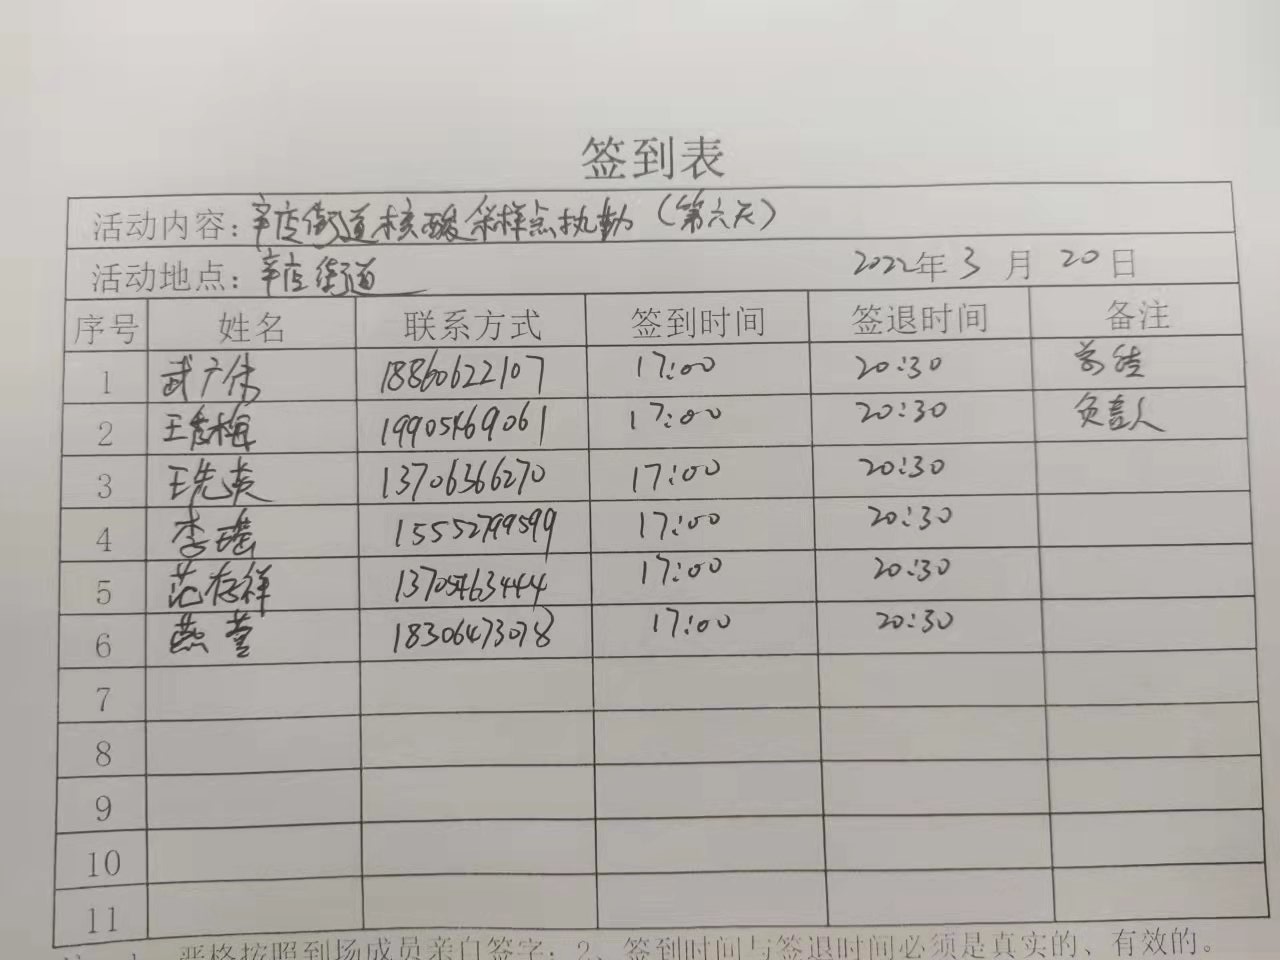 签到表
活动内容：辛店街道核酸采样点执勤（第六天）
活动地点：辛店街道 2022年3月20日
序号 姓名 联系方式 签到时间 签退时间 备注
1 武广伟 18860622107 17:00 20:30
2 王秀梅 19905469061 17:00 20:30 负责人
3 王先英 13706366270 17:00 20:30
4 李瑶 15552799599 17:00 20:30
5 范存祥 13705463444 17:00 20:30
6 燕萱 18306473078 17:00 20:30
7
8
9
10
11
严格按照到场成员亲自签字；2、签到时间与签退时间必须是真实的、有效的。